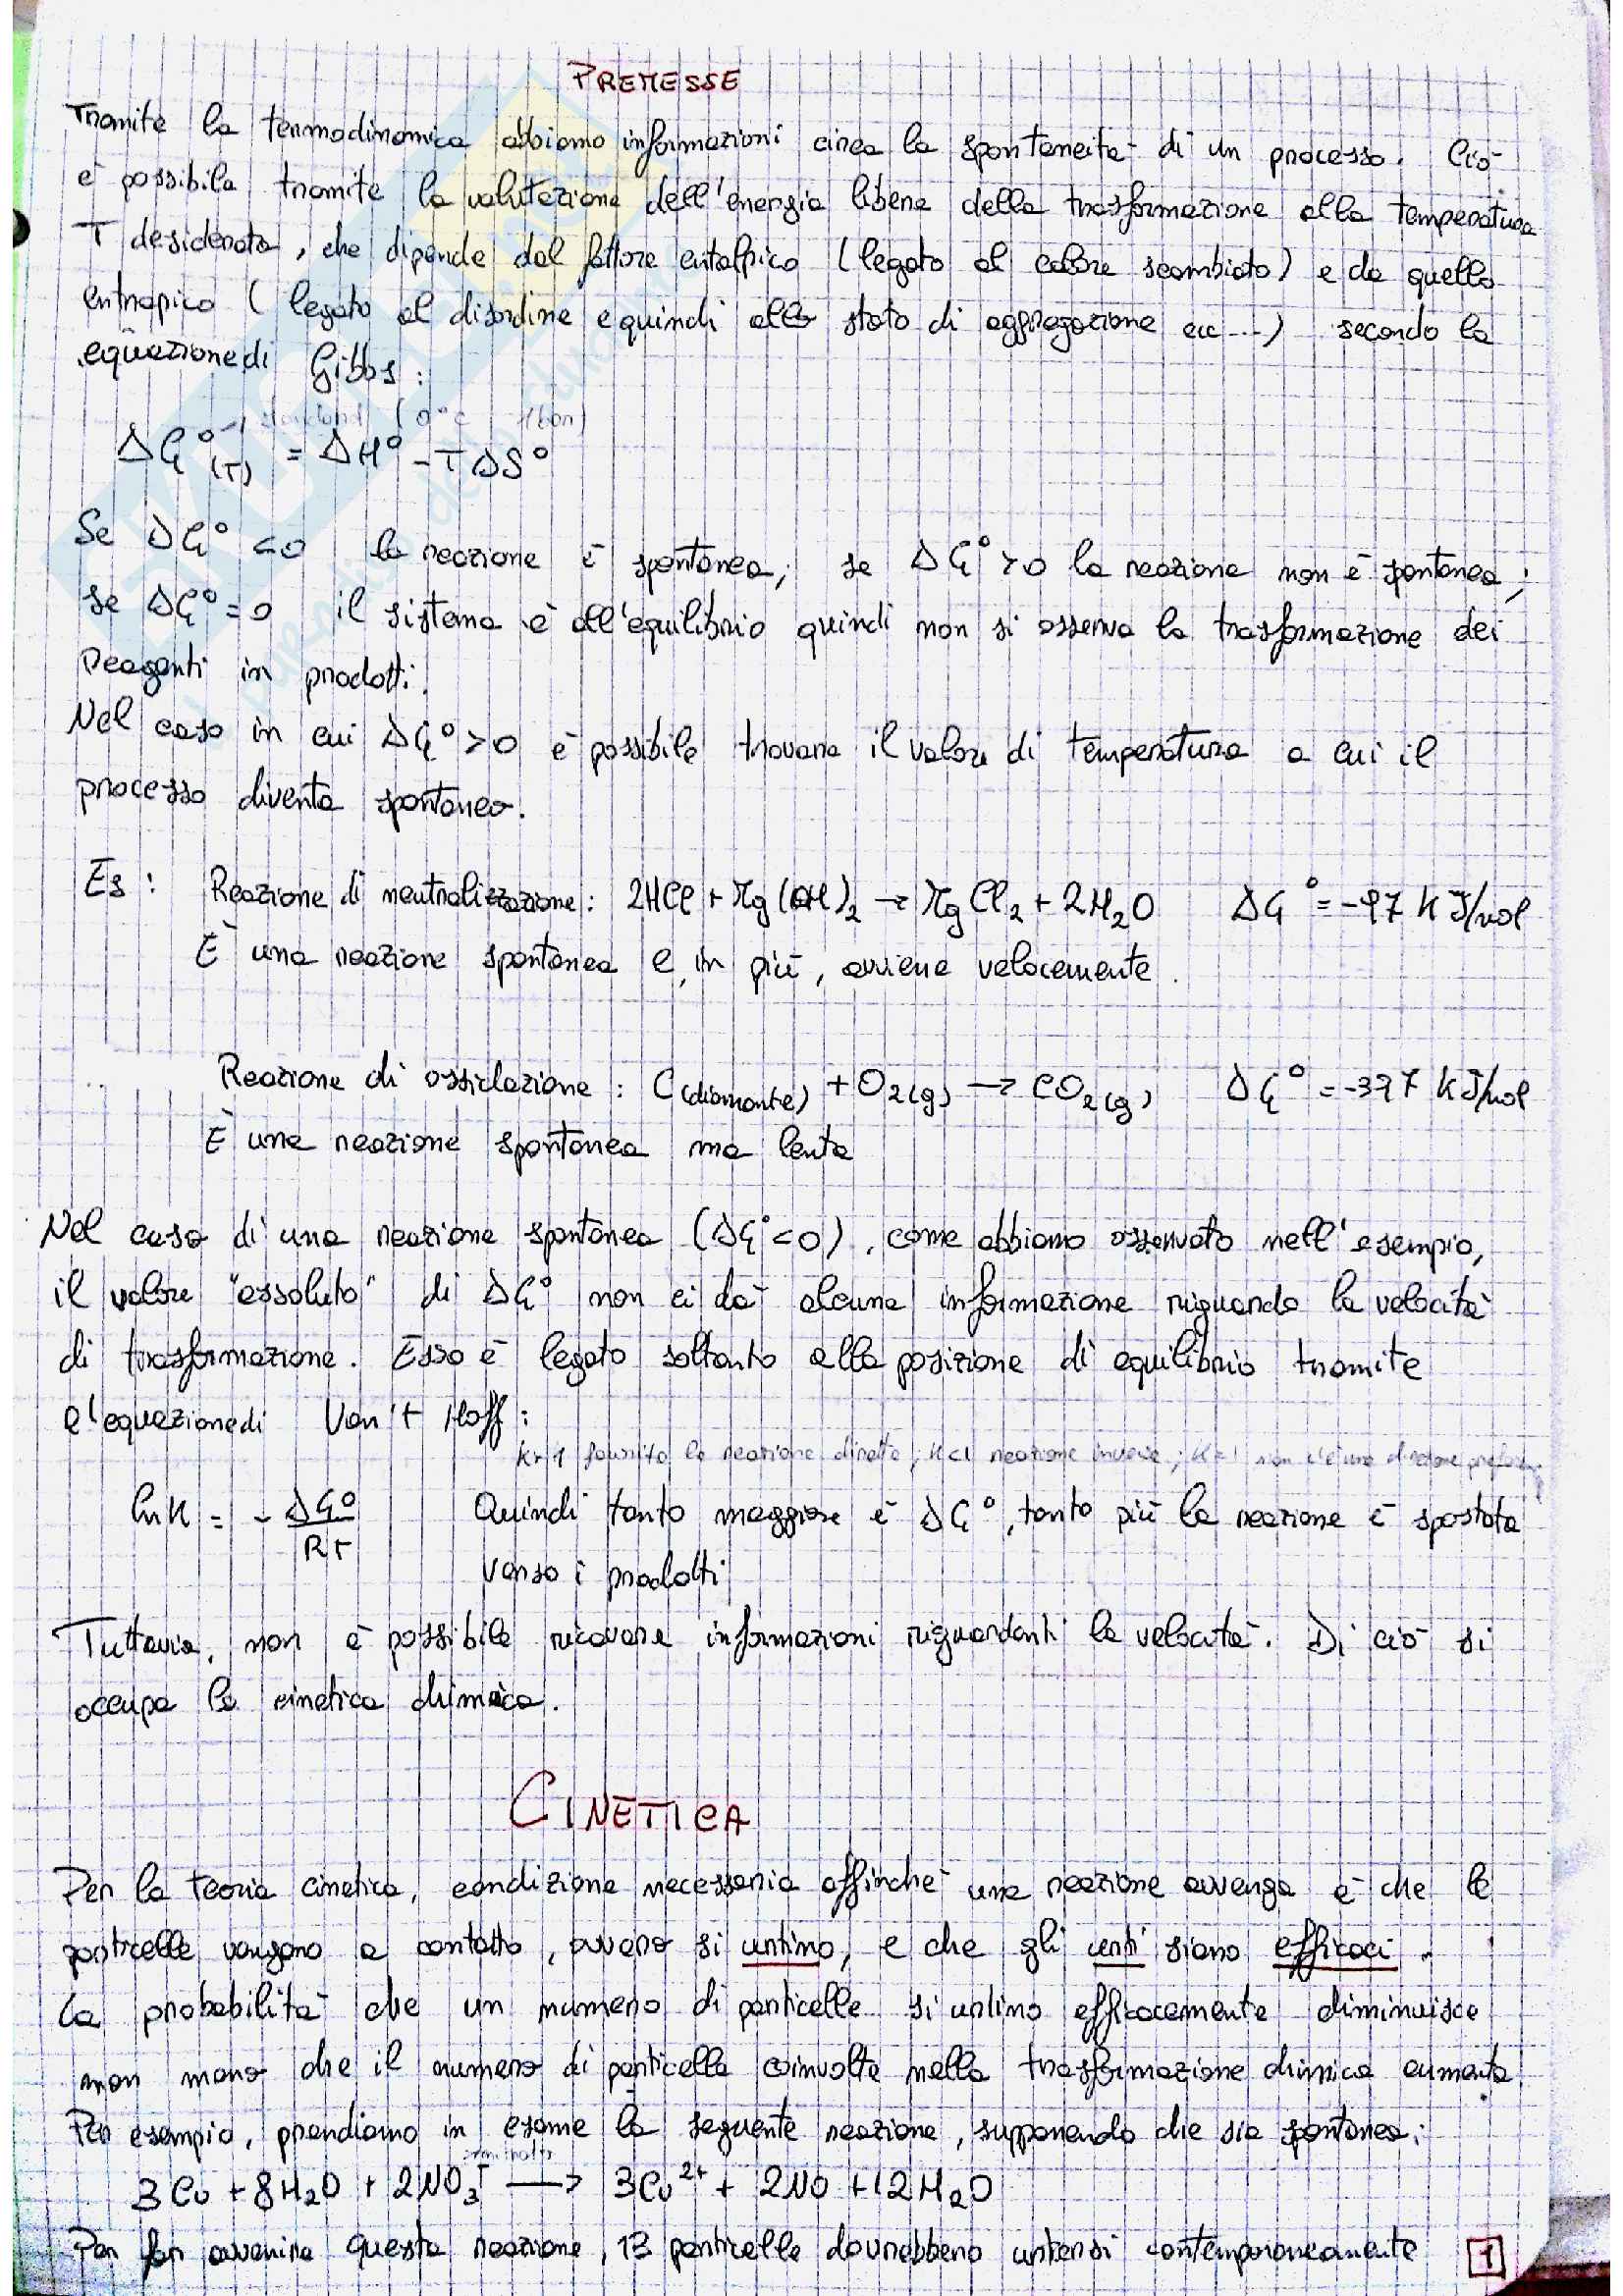 PREMESSE
Tramite la termodinamica abbiamo informazioni circa la spontaneità di un processo. Ciò
è possibile tramite la valutazione dell'energia libera della trasformazione alla temperatura
T desiderata, che dipende dal fattore entalpico (legato al calore scambiato) e da quello
entropico (legato al disordine e quindi allo stato di aggregazione ecc...) secondo la
equazione di Gibbs:
standard (0°C 1bar)
ΔG°(T) = ΔH° - TΔS°
Se ΔG° <0 la reazione è spontanea; se ΔG° >0 la reazione non è spontanea;
se ΔG° = 0 il sistema è all'equilibrio quindi non si osserva la trasformazione dei
reagenti in prodotti.
Nel caso in cui ΔG° >0 è possibile trovare il valore di temperatura a cui il
processo diventa spontaneo.
Es: Reazione di neutralizzazione: 2HCl + Mg(OH)2 → MgCl2 + 2H2O ΔG° = -97 kJ/mol
È una reazione spontanea e, in più, avviene velocemente.
Reazione di ossidazione: C(diamante) + O2(g) → CO2(g) ΔG° = -397 kJ/mol
È una reazione spontanea ma lenta
Nel caso di una reazione spontanea (ΔG°<0), come abbiamo osservato nell'esempio,
il valore "assoluto" di ΔG° non ci dà alcuna informazione riguardo la velocità
di trasformazione. Esso è legato soltanto alla posizione di equilibrio tramite
l'equazione di Van't Hoff:
K>1 favorita la reazione diretta; K<1 reazione inversa; K=1 non c'è una direzione
lnK = - ΔG°/RT Quindi tanto maggiore è ΔG°, tanto più la reazione è spostata
verso i prodotti
Tuttavia, non è possibile ricavare informazioni riguardanti la velocità. Di ciò si
occupa la cinetica chimica.
CINETICA
Per la teoria cinetica, condizione necessaria affinché una reazione avvenga è che le
particelle vengano a contatto, ovvero si urtino, e che gli urti siano efficaci.
La probabilità che un numero di particelle si urtino efficacemente diminuisce
man mano che il numero di particelle coinvolte nella trasformazione chimica aumenta.
Per esempio, prendiamo in esame la seguente reazione, supponendo che sia spontanea:
3Cu + 8H2O + 2NO3- → 3Cu2+ + 2NO + 12H2O
Per far avvenire questa reazione, 13 particelle dovrebbero urtarsi contemporaneamente
1